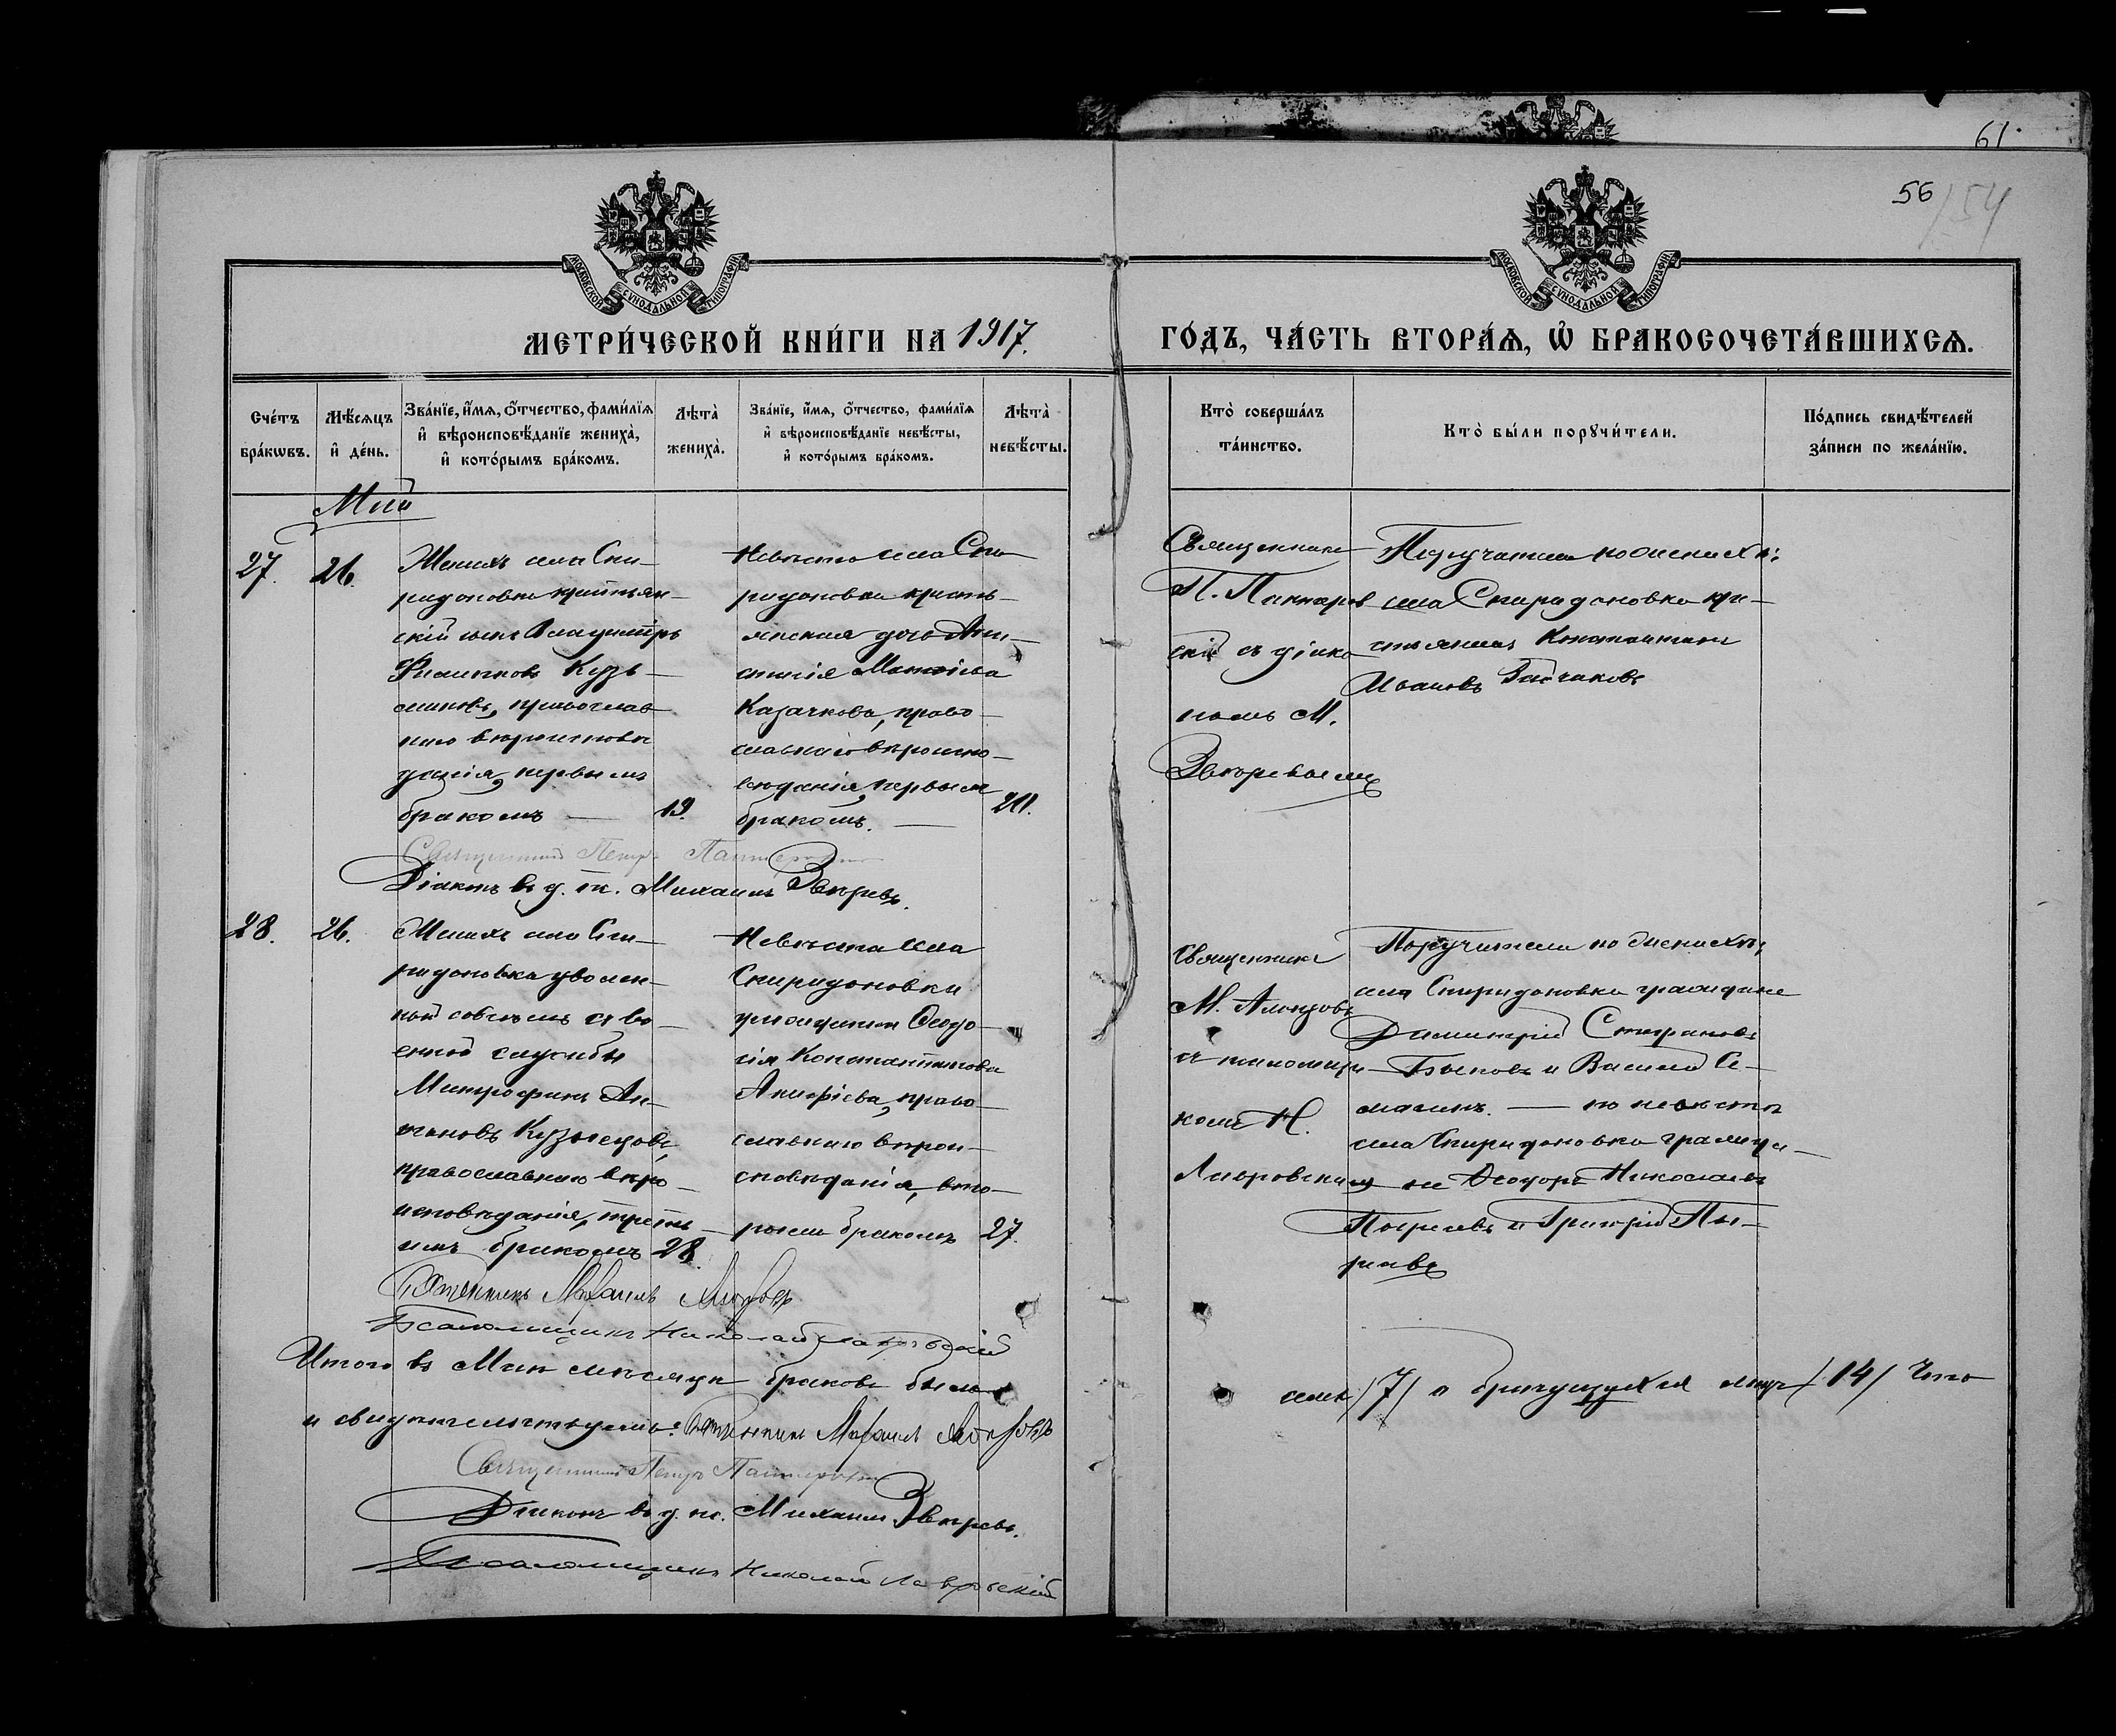 61.
56
/54
МОСКОВСКОЙ СУНОДАЛЬНОЙ ТИПОГРАФІИ
МОСКОВСКОЙ СУНОДАЛЬНОЙ ТИПОГРАФІИ
МЕТРИ́ЧЕСКОЙ КНИ́ГИ НА 1917.
ГО́ДЪ, ЧА́СТЬ ВТОРА́Ѧ, Ѽ БРАКОСОЧЕТА́ВШИХСѦ.
Сче́тъ бра́кѡвъ.
Мѣ́сѧцъ и҆ де́нь.
Зва́нїе, и҆́мѧ, ѻ҆́тчество, фами́лїѧ и҆ вѣроисповѣ́данїе жениха̀, и҆ кото́рымъ бра́комъ.
Лѣта̀ жениха̀.
Зва́нїе, и҆́мѧ, ѻ҆́тчество, фами́лїѧ и҆ вѣроисповѣ́данїе невѣ́сты, и҆ кото́рымъ бра́комъ.
Лѣта̀ невѣ́сты.
Кто̀ соверша́лъ та́инство.
Кто̀ бы́ли порꙋчи́тели.
По́дпись свидѣ́телей за́писи по жела́нїю.
Май
27.
26.
Женихъ села Спи-
ридоновки крестьян-
скій сынъ Владиміръ
Филипповъ Кузь-
миновъ, православ-
наго вѣроисповѣ
данія, первымъ
бракомъ —
19.
Невѣста села Спи-
ридоновки кресть-
янская дочь Ани-
сія
Казачкова, право-
славнаго вѣроиспо-
вѣданія, первымъ
бракомъ. —
20.
Священникъ
П. Пантеров
скій съ діако
номъ М.
Звѣревымъ
Поручители по женихѣ:
села Спиридоновки кре-
стьянинъ Константинъ
Ивановъ
Священникъ Петръ Пантеровскій
Діаконъ въ д. пс. Михаилъ Звѣревъ.
28.
26.
Женихъ села Спи-
ридоновки уволен-
ный совсѣмъ съ во-
енной службы
Митрофанъ
Кузнецовъ,
православнаго вѣро-
исповѣданія, треть-
имъ бракомъ
28.
Невѣста села
Спиридоновки
гражданка Ѳеодо-
сія Константинова
православнаго вѣрои-
сповѣданія, вто-
рымъ бракомъ
27.
Священникъ
М.
съ псаломщи-
комъ Н.
Лавровскимъ
Поручители по женихѣ:
села Спиридоновки граждане
Димитрій Стефановъ
Быковъ и Василій Се-
— по невѣстѣ
села Спиридоновки гражда-
не Ѳеодоръ Николаевъ
и Григорій
Священникъ Михаилъ
Псаломщикъ Николай Лавровскій
Итого въ Маѣ мѣсяцѣ браковъ было
семь /7/ а бракующихся лицъ /14/ Что
и свидѣтельствуемъ: Священникъ Михаилъ
Священникъ Петръ Пантеровскій
Діаконъ въ д. пс. Михаилъ Звѣревъ.
Псаломщикъ Николай Лавровскій